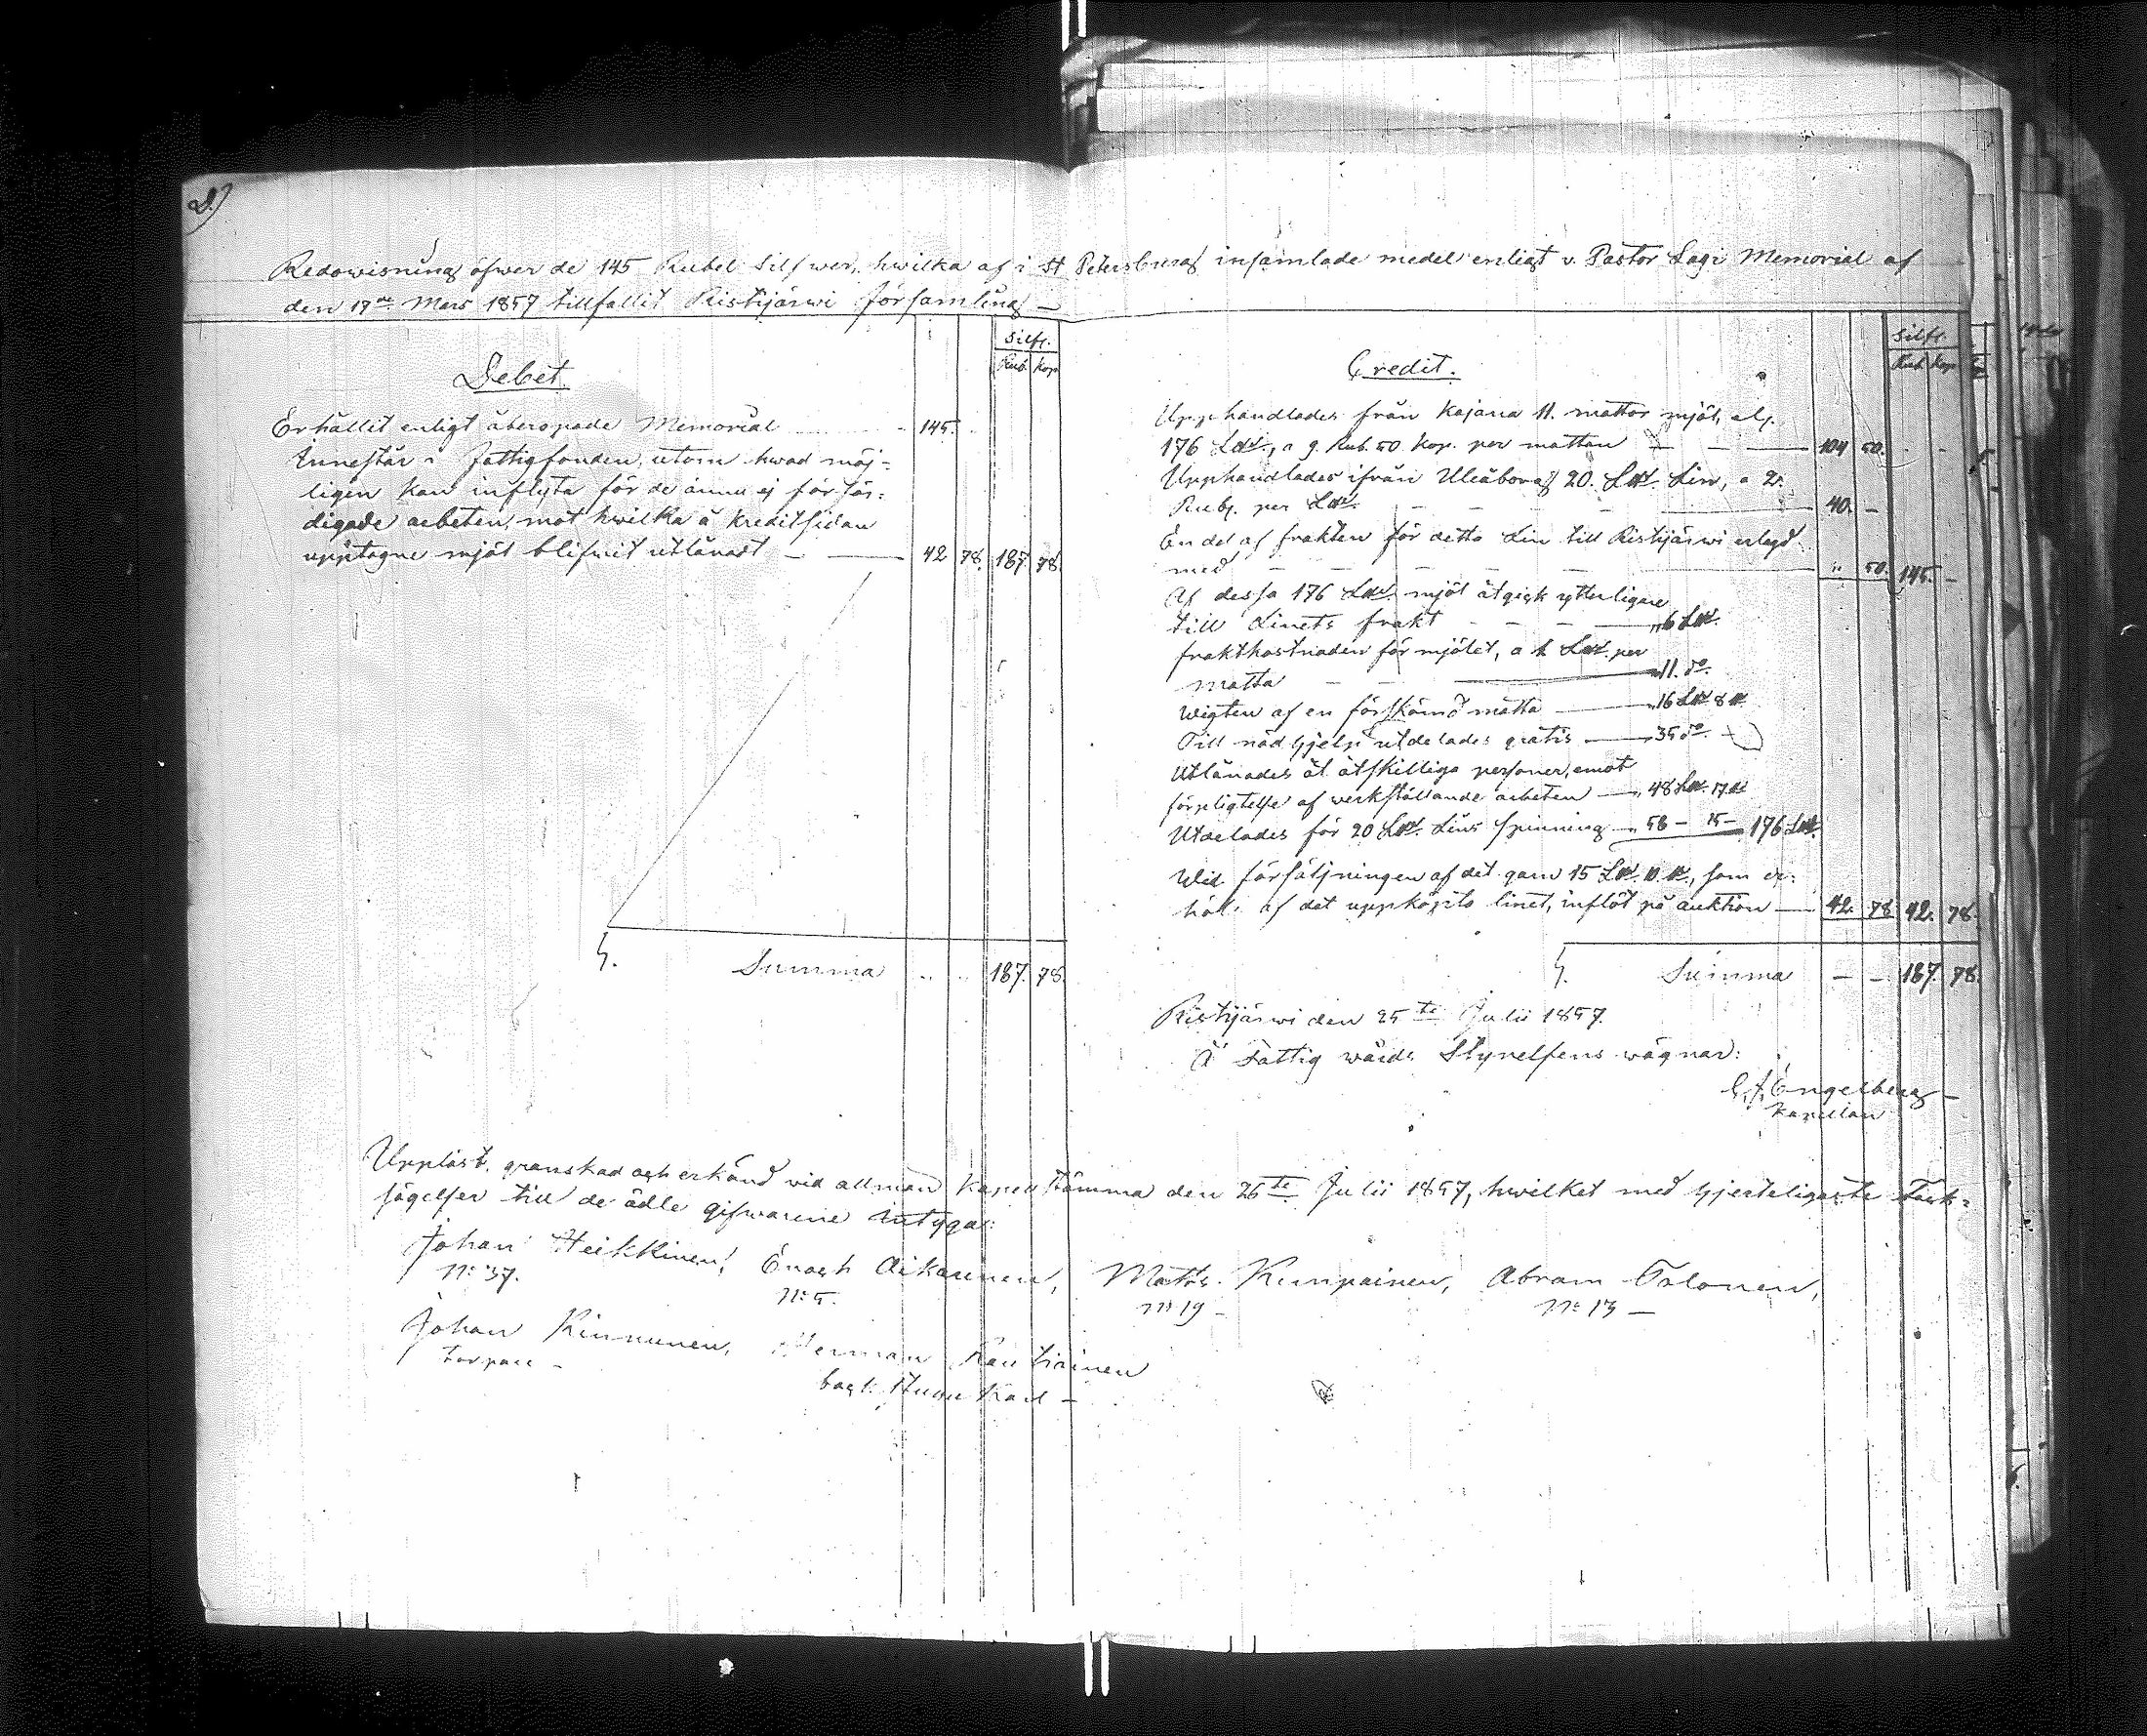 D.)
Redowisning öfwer de 145 Rubel Silfwer, hwilka af i St Petersburg insamlade medel enligt v. Pastor Sagi Memorial af
den 17de Mars 1857 tillfallit Ristijärwi församling —
Debet.
Silfr.
Rub. Kop.
Erhållit enligt åberopade Memorial 145. -
Innestår i Fattigfonden, utom hwad möj-
ligen kan inflyta för de ännu ej för fär-
digade arbeten, mot hwilka å kreditsidan
upptagne mjöl blifwit utlånadt — 42 78. 187. 78.
S. Summa .. .. 187. 78.
Credit.
Silfr.
Rub. Kop.
Upphandlades från Kajana 11. mattor mjöl, elr.
176 L℔., a 9. Rub. 50 Kop. per mattan — 104 50. - -
Upphandlades ifrån Uleåborg 20. L℔. Lin, a 2.
Rubl. per L℔. — 40. -
En del af frakten för detta Lin till Ristijärwi erlagd
med — " 50. 145. -
Af dessa 176 L℔. mjöl åtgick ytterligare
till Linets frakt — " 6 L℔.
fraktkostnaden för mjölet, a 1 L℔. per
matta — " 11. do.
Wigten af en förskämd matta — " 16 L℔ 8 ℔
Till nödhjelp utdelades gratis — " 35 do. -
Utlånades åt åtskilliga personer, emot
förpligtelse af werkställande arbeten — " 48 L℔. 17 ℔
Utdelades för 20 L℔. Lins spinning — " 58 - 15 - 176 L℔.
Wid försäljningen af det garn 15 L℔. 10. ℔., som er-
höl. af det uppköpta linet, inflöt på auktion — 42. 78 42. 78.
S. Summa — — 187. 78.
Ristijärwi den 25te Julii 1857.
Å Fattig wårds Styrelsens wägnar:
C. J. Engelberg —
Kapellan
Uppläst, granskad och erkänd vid allmän Kapellstämma den 26te Julii 1857, hwilket med hjerteligaste Tack-
sägelser till de ädle gifwarene intygar:
Johan Heikkinen, Enoch Aikarinen, Matts. Kemppainen, Abram Tolonen,
No 37. No 5. No 19 — No 13 —
Johan Kinnunen, Herman Rautiainen
torpare — Karl —